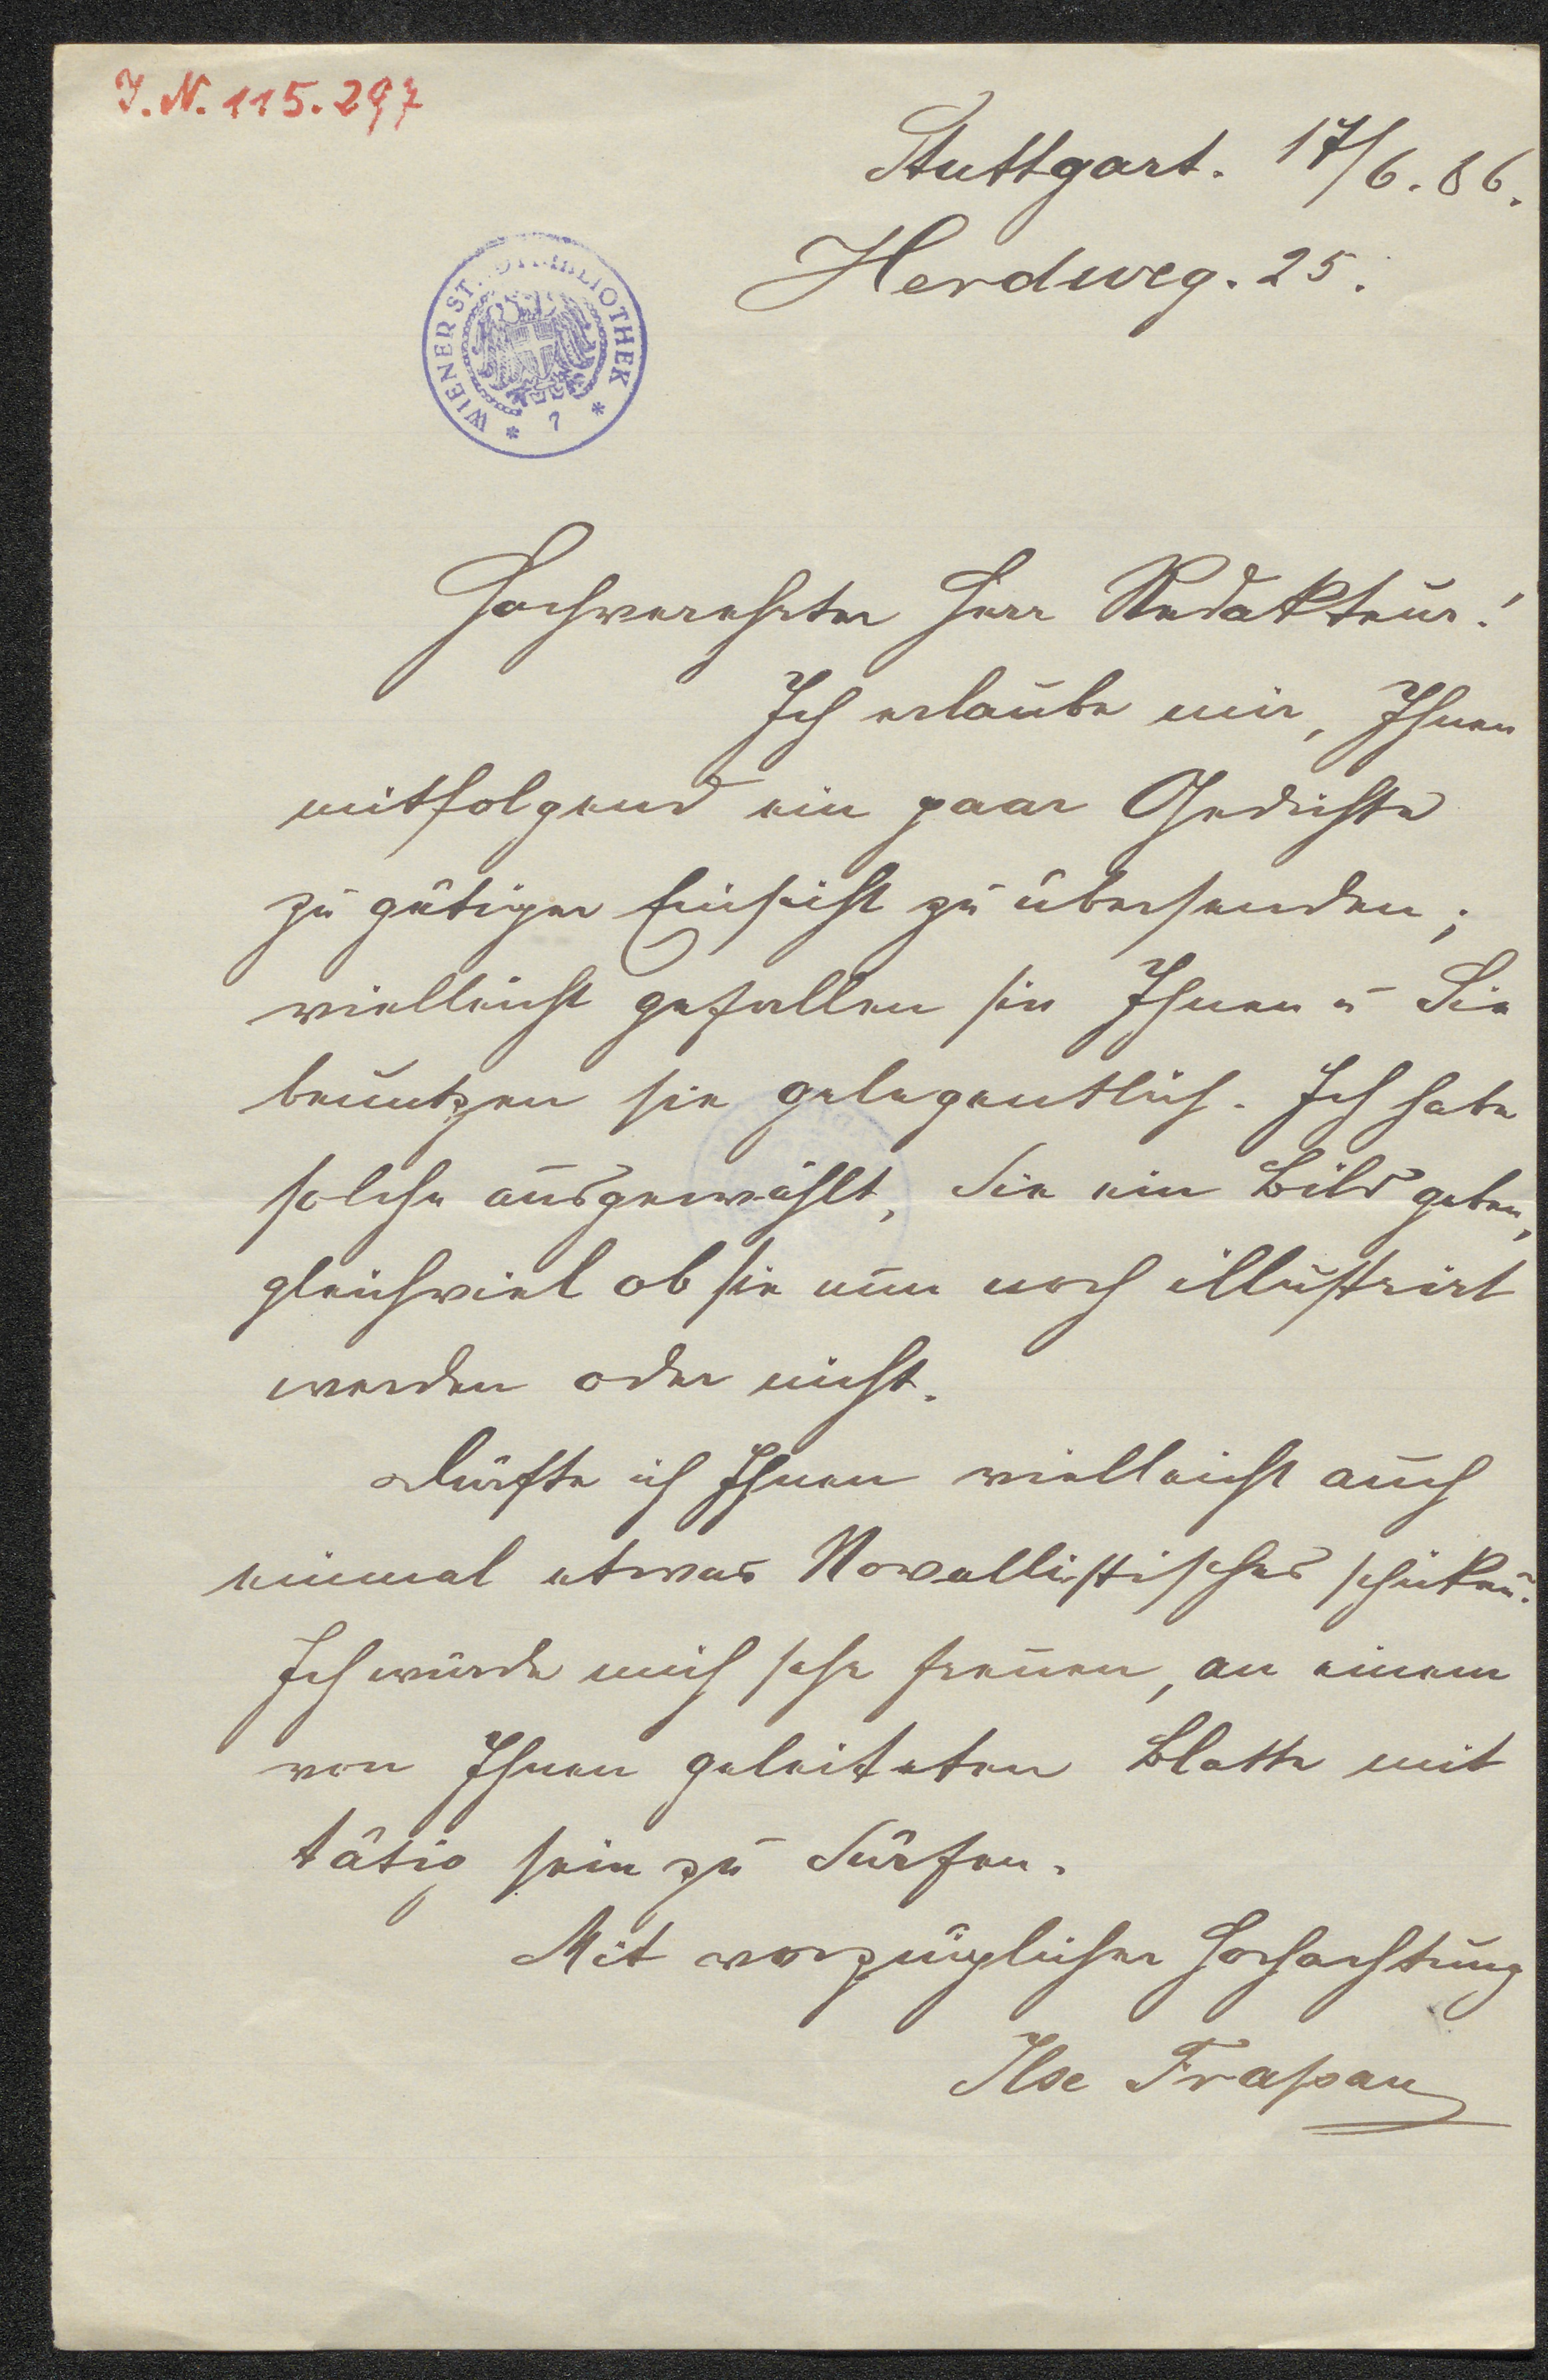 J. N. 115.297
Stuttgart. 17/6. 86.
Herdweg. 25.
WIENER STADTBIBLIOTHEK * 7 *
Hochverehrter Herr Redakteur!
Ich erlaube mir, Ihnen
mitfolgend ein paar Gedichte
zu gütiger Einsicht zu übersenden;
vielleicht gefallen sie Ihnen u Sie
benutzen sie gelegentlich. Ich habe
solche ausgewählt, die ein Bild geben,
gleichviel ob sie nun noch illustrirt
werden oder nicht.
Dürfte ich Ihnen vielleicht auch
einmal etwas Novellistisches schicken?
Ich würde mich sehr freuen, an einem
von Ihnen geleiteten Blatte mit
tätig sein zu dürfen.
Mit vorzüglicher Hochachtung
Ilse Frapan